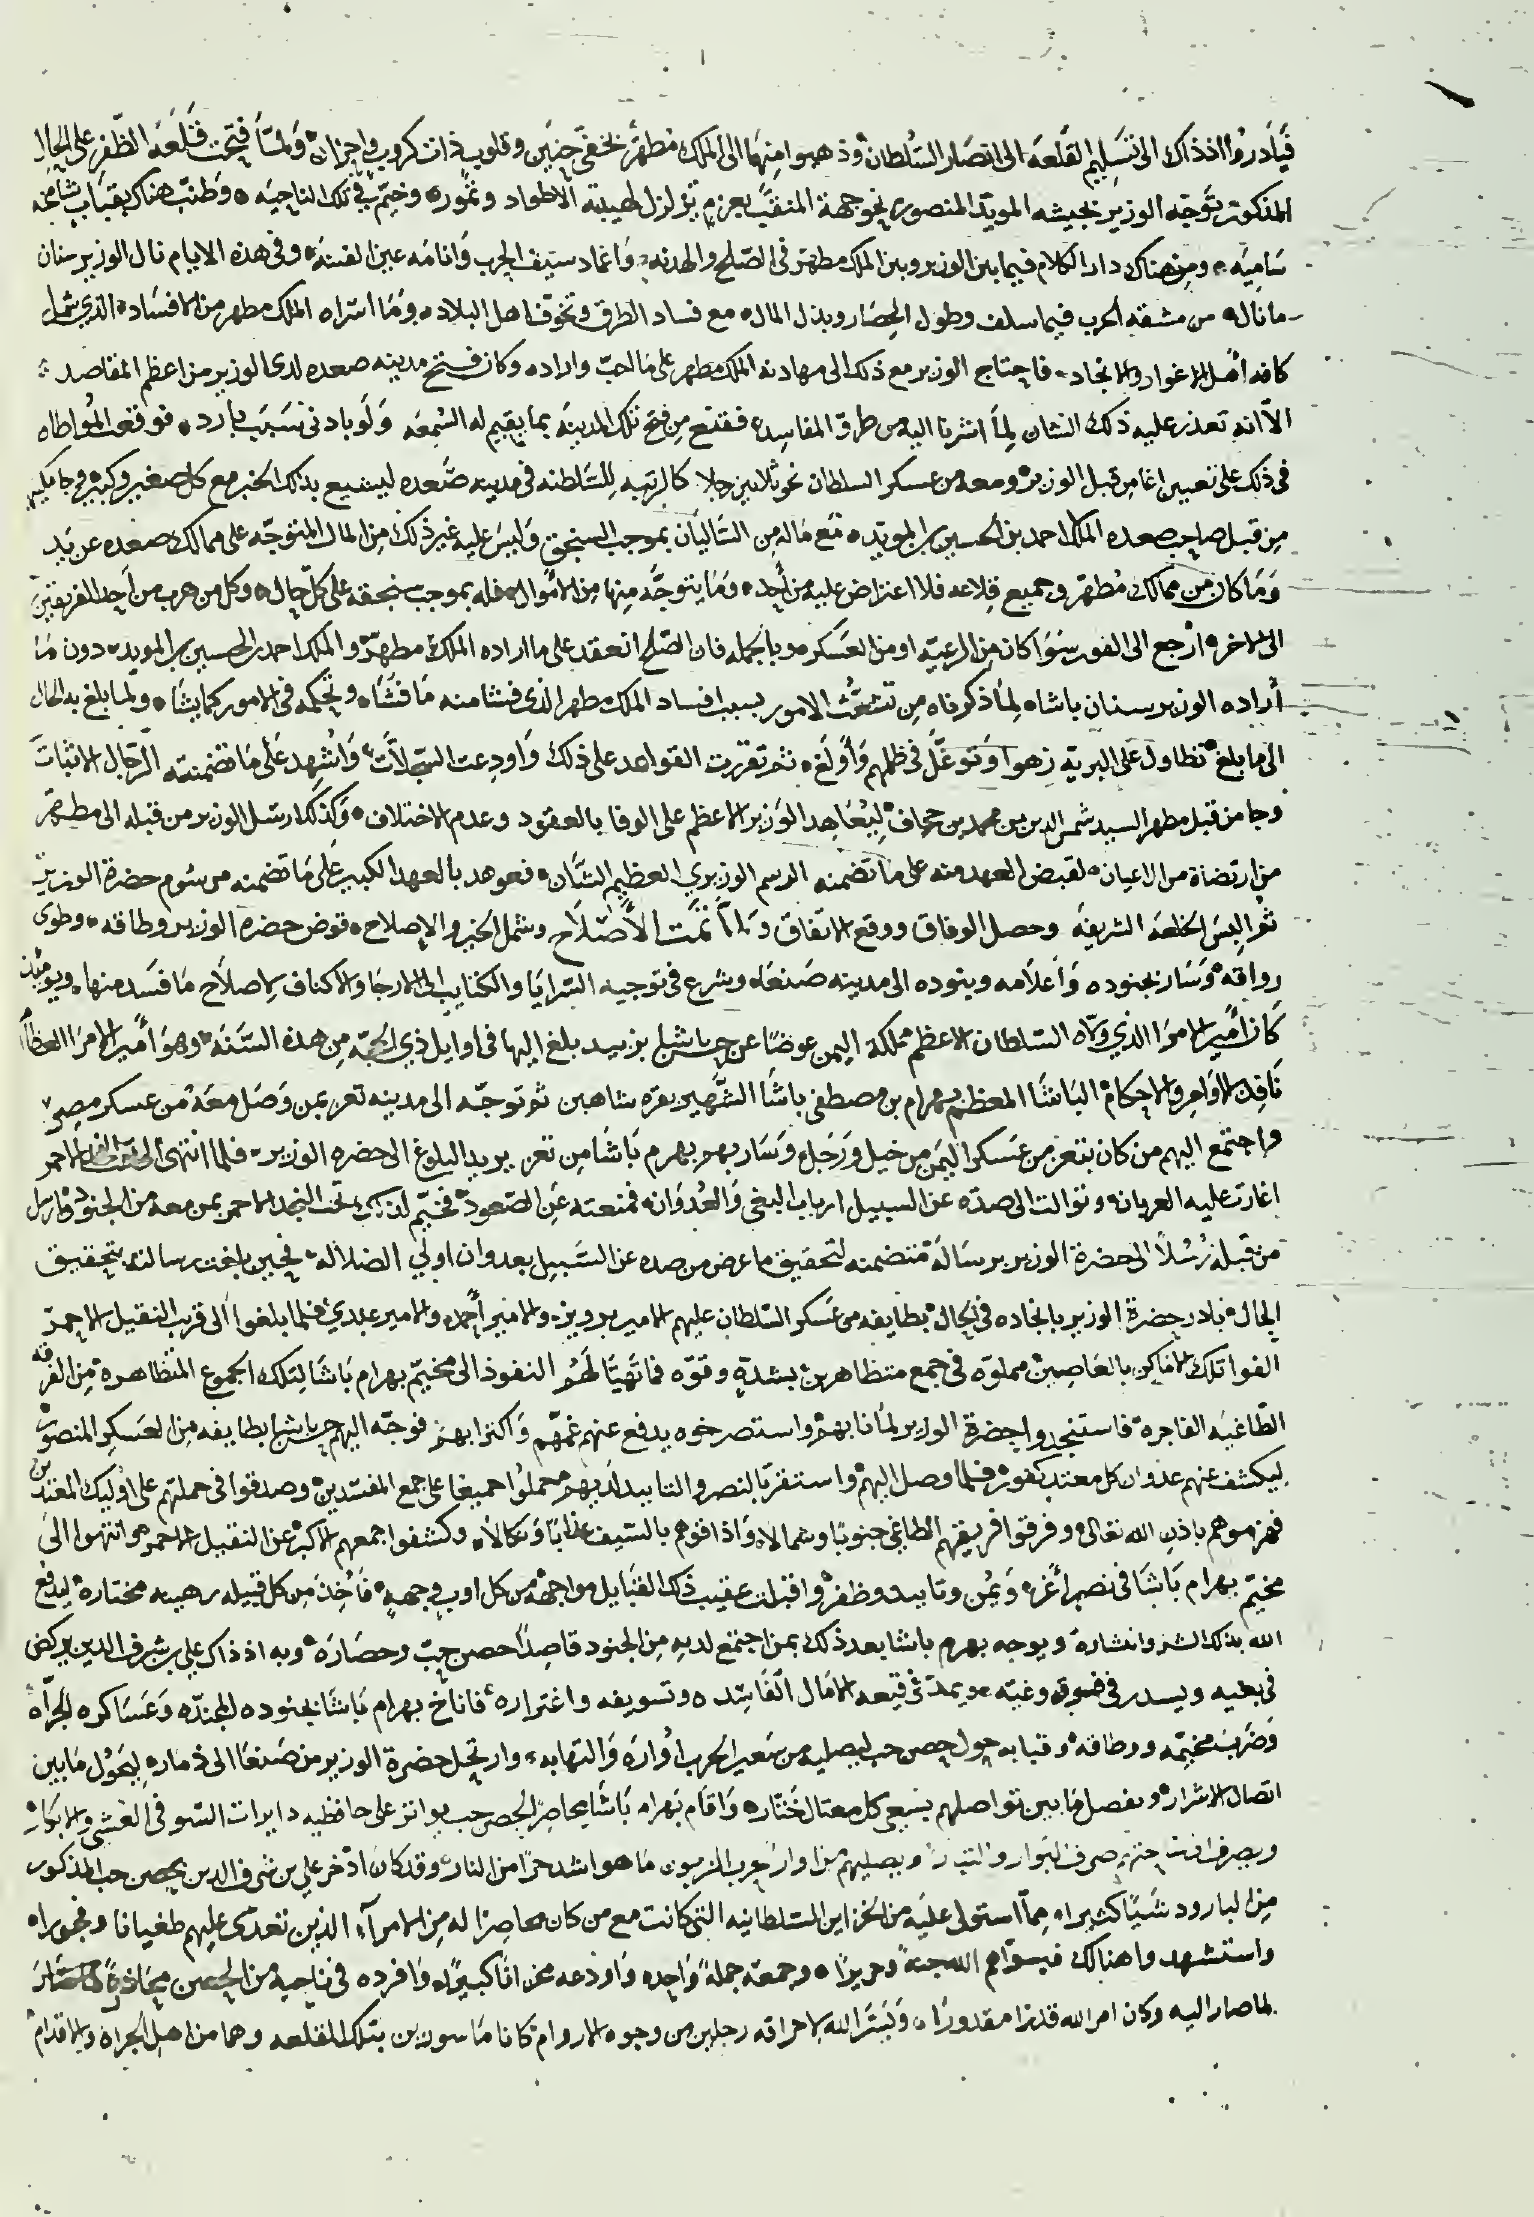 فبادروا اذ ذاك الى تسليم القلعه الى انصار السلطان وذهبوا منها الى الملك مطهر بخفي حنين وقلوب ذات كروب واحزان ولما فتحت قلعه الظفر على الحال
المذكور توجه الوزير بجيشه المويد المنصور نحو جهة المنقب بعزم تزلزل لهيبته الاطواد وتمور وخيم في تلك الناحيه وطنب هناك بقباب شامخه
ساميه ومن هناك دار الكلام فيما بين الوزير وبين الملك مطهر في الصلح والهدنه واغماد سيف الحرب وانامه عين الفتنه وفي هذه الايام نال الوزير سنان
ما ناله من مشقه الحرب فيما سلف وطول الحصار وبذل المال مع فساد الطرق وتخوف اهل البلاد وما اثراه الملك مطهر من الافساد الذي شمل
كافه اهل الاغوار والانجاد فاحتاج الوزير مع ذلك الى مهادنه الملك مطهر على ما احب واراده وكان فتح مدينه صعده لدى الوزير من اعظم المقاصد
الا انه تعذر عليه ذلك الشان لما اشرنا اليه من طرق المفاسد فقنع من فتح تلك المدينه بما يقيم له السمعه ولو بادنى سبب بارد فوقعت المواطاه
في ذلك على تعيين اغا من قبل الوزير ومعه من عسكر السلطان نحو ثلاثين رجلا كالرتبه للسلطنه في مدينه صعده ليشيع بذلك الخبر مع كل صغير وكبير وجامكيتهم
من قبل صاحب صعده الملك احمد بن الحسين بن المويد مع ماله من الساليان بموجب السنجق وليس عليه غير ذلك من المال المتوجه على ممالك صعده عن يد
وما كان من ممالك مطهر وجميع قلاعه فلا اعتراض عليه من احد وما يتوجه منها من الاموال فله بموجب سنجقه على كل حال وكل من هرب من احد الفريقين
الى الاخر ارجع الى الفور سوا كان من الرعيه او من العسكر وبالجمله فان الصلح انعقد على ما اراده الملك مطهر والملك احمد بن الحسين بن المويد دون ما
اراده الوزير سنان باشاه لما ذكرناه من تشعث الامور بسبب افساد الملك مطهر الذي فشا منه ما فشاه وتحكمه في الامور كما يشاه ولما بلغ به الحال
الى ما بلغ تطاول على البريه زهوا وتوغل في ظلمهم واولغ ثم تقررت القواعد على ذلك واودعت السجلات واشهد على ما تضمنته الرجال الاثبات
وجا من قبل مطهر السيد شمس الدين بن محمد بن جحاف ليعاهد الوزير الاعظم على الوفا بالعقود وعدم الاختلاف وكذلك ارسل الوزير من قبله الى مطهر
من ارتضاه من الاعيان لقبض العهد منه على ما تضمنه الرسم الوزيري العظيم الشان فعوهد بالعهد الكبير على ما تضمنه مرسوم حضرة الوزير
ثم البس الخلعه الشريفه وحصل الوفاق ووقع الاتفاق ولما تمت الاصلاح وشمل الخير والاصلاح قوض حضره الوزير وطاقه وطوى
رواقه وسار بجنوده واعلامه وبنوده الى مدينه صنعاه وشرع في توجيه السرايا والكتايب الى الارجا والاكناف لاصلاح ما فسد منها ويوميذ
كان امير الامرا الذي ولاه السلطان الاعظم مملكة اليمن عوضا عن حسن باشا بزبيد بلغ اليها في اوايل ذي الحجه من هذه السنه وهو امير الامرا العظام
نافذ الاوامر والاحكام الباشا المعظم بهرام بن مصطفى باشا الشهير بقره شاهين ثم توجه الى مدينه تعز بمن وصل معه من عسكر مصر
واجتمع اليهم من كان بتعز من عسكر اليمن من خيل ورجل وسار بهم بهرم باشا من تعز يريد البلوغ الى حضره الوزير فلما انتهى الى الاحمر
اغارت عليه العربان وتوالت الى صده عن السبيل ارباب البغي والعدوان فمنعته عن الصعود فخيم لذلك تحت النجد الاحمر بمن معه من الجنود وارسل
من قبله رسلا الى حضرة الوزير برسالة متضمنه لتحقيق ما عرض من صده عن السبيل بعدوان اولي الضلاله فحين بلغت رسالته بتحقيق
الحال بادر حضرة الوزير بانجاده في الحال بطايفه من عسكر السلطان عليهم الامير برويز والامير احمد والامير عبدي فلما بلغوا الى قريب النقيل الاحمر
الفوا تلك الاماكن بالعاصين مملوه في جمع متظاهرين بشدة وقوه فما تهيا لهم النفوذ الى مخيم بهرام باشا لتلك الجموع المتظاهرة من الفرقه
الطاغيه الفاجره فاستنجدوا حضرة الوزير لما نابهم واستصرخوه يدفع عنهم غمهم واكترابهم فوجه اليهم حسن باشا بطايفه من العسكر المنصور
ليكشف عنهم عدوان كل معتد كفور فلما وصل اليهم واستقر بالنصر والتاييد لديهم حملوا جميعا على جمع المفسدين وصدقوا في حملتهم على اوليك المعتدين
فهزموهم باذن الله تعالى وفرقوا فريقهم الطاغي جنوبا وشمالا واذاقوهم بالسيف عذابا ونكالا وكشفوا جمعهم الاكبر عن النقيل الاحمر وانتهوا الى
مخيم بهرام باشا في نصر اغر ويمن وتاييد وظفر واقبلت عقيب ذلك القبايل مواجهة من كل اوب وجهة فاخذ من كل قبيله رهينه مختاره ليدفع
الله بذلك الشر وانتشاره وتوجه بهرم باشا بعد ذلك بمن اجتمع لديه من الجنود قاصدا حصن حب وحصاره وبه اذ ذاك علي بن شرف الدين يركض
في بغيه ويسدر في فسوقه وغيه ويمد في قيعه الامال الفاسده وتسويفه واغتراره فاناخ بهرام باشا بجنوده المجنده وعساكره الجراه
وضرب مخيمه ووطاقه وقبابه حول حصن حب ليصليه من سعير الحرب اواره والتهابه وارتحل حضرة الوزير من صنعا الى ذمار ليحول ما بين
اتصال الاشرار ويفصل ما بين تواصلهم بسعي كل مغتال ختار واقام بهرام باشا يحاصر الحصن حب يواتر على حافظيه دايرات السو في العشي والابكار
ويصرف صرف البوار والتبار ويصليهم من اوار الحرب الزبون ما هو اشد حرا من النار وقد كان اذخر علي بن شرف الدين بحصن حب المذكور
من البارود شيا كثيرا مما استولى عليه من الخزاين السلطانيه التي كانت مع من كان محاصرا له من الامرآء الذين تعدى عليهم طغيانا وفجورا
واستشهدوا هنالك فبواهم الله جنة وحريرا وجمعه جملة واحده واودعه مخزانا كبيرا وافرده في ناحيه من الحصن
لما صار اليه وكان امر الله قدرا مقدورا ويسر الله لاحراقه رجلين من وجوه الاروام كانا ماسورين بتلك القلعه وهما من اهل الجراه والاقدام